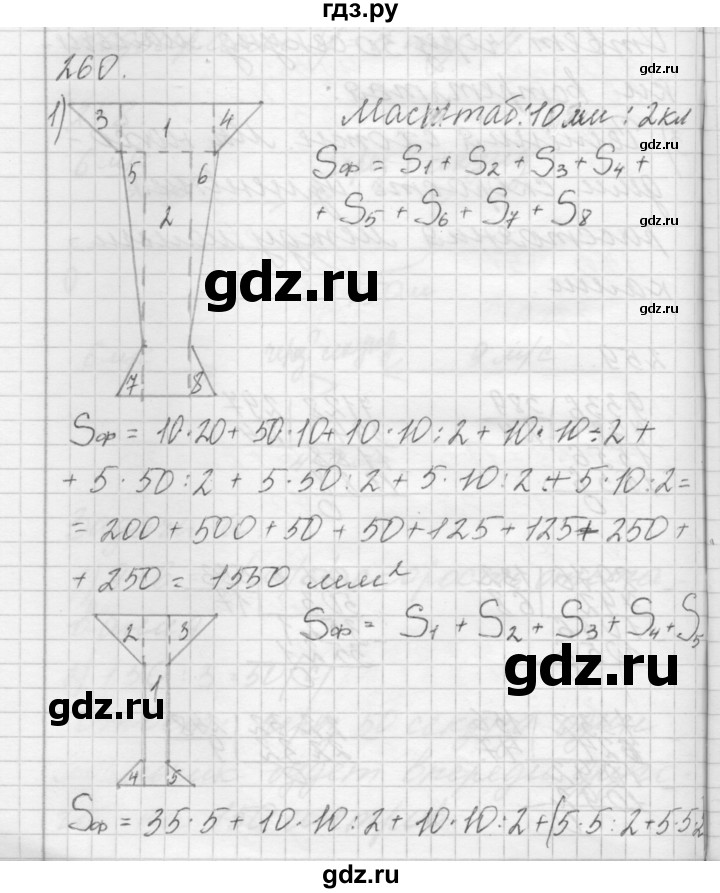 гдз.ру
260.
1)
3 1 4
5 6
2
7 8
Масштаб: 10 мм : 2 кл
Sф = S1 + S2 + S3 + S4 +
+ S5 + S6 + S7 + S8
gdz.ru
gdz.ru
gdz.ru
gdz.ru
gdz.ru
Sф = 10·20 + 50·10 + 10·10:2 + 10·10÷2 +
+ 5·50:2 + 5·50:2 + 5·10:2 + 5·10:2 =
= 200 + 500 + 50 + 50 + 125 + 125 + 250 +
+ 250 = 1550 мм²
2 3
1
4 5
Sф = S1 + S2 + S3 + S4 + S5
gdz.ru
gdz.ru
Sф = 35·5 + 10·10:2 + 10·10:2 + (5·5:2 + 5·5:2
gdz.ru
gdz.ru